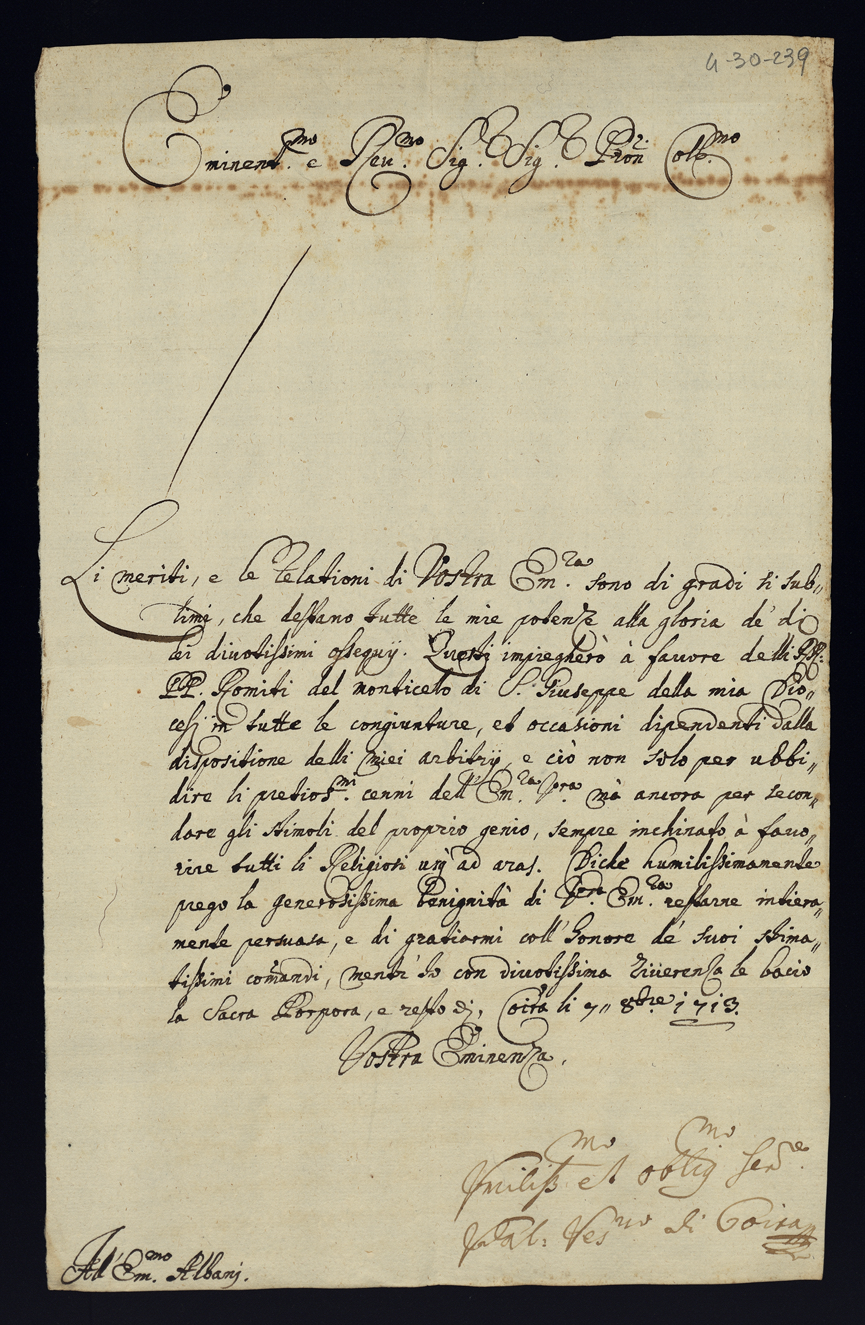 4-30-239
Eminent.mo e Reu.mo Sig.r Sig.r Pron Coll.mo
Li meriti, e le relationi di Vostra Em.za sono di gradi si sub„
limi, che destano tutte le mie potenze alla gloria de' di
lei diuotissimi ossequÿ. Questi impiegherò à fauore delli RR:
PP. Romiti del monticello di S. Giuseppe della mia Dio„
cesi in tutte le congiunture, et occasioni dipendenti dalla
dispositione delli miei arbitrÿ, e ciò non solo per ubbi„
dire li pretios.mi cenni dell' Em.za Vra. mà ancora per secon„
dare gli stimoli del proprio genio, sempre inchinato à fauo„
rire tutti li Religiosi usq ad aras. Diche humilissimamente
prego la generosissima benignità di Vra. Em.za restarne intiera„
mente persuasa, e di gratiarmi coll' honore de' suoi stima„
tissimi comandi, mentr' Io con diuotissima riuerenza le bacio
la Sacra Porpora, e resto di, Coira li 7„ 8bre. 1713.
Vostra Eminenza,
Vmiliss.mo et oblig.mo ser.e
Vdal: Ves.uo di Coira
All' Em.mo Albani.